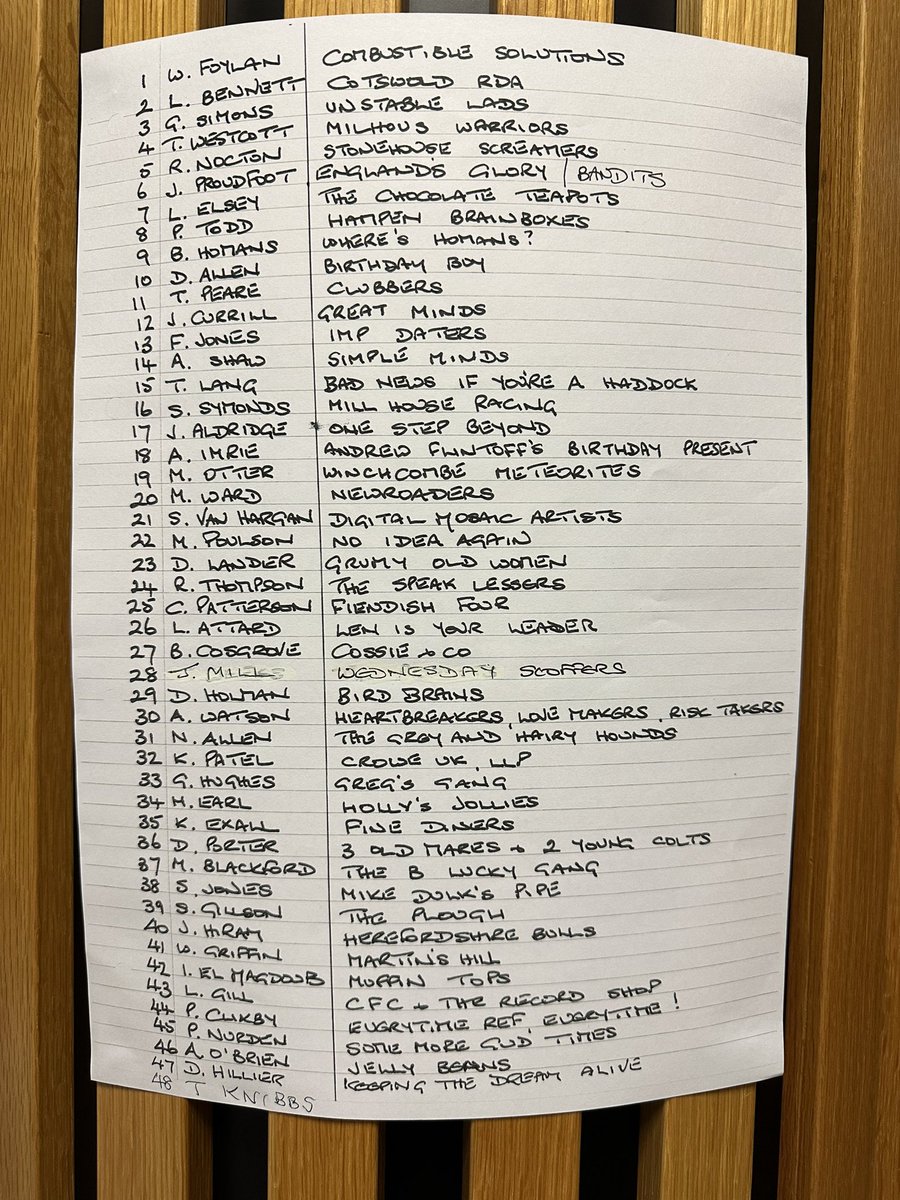 1 W. FOYLAN COMBUSTIBLE SOLUTIONS
2 L. BENNETT COTSWOLD RDA
3 G. SIMONS UNSTABLE LADS
4 T. WESTCOTT MILHOUS WARRIORS
5 R. NOCTON STONEHOUSE SCREAMERS
6 J. PROUDFOOT ENGLAND'S GLORY / BANDITS
7 L. ELSEY THE CHOCOLATE TEAPOTS
8 P. TODD HAMPEN BRAINBOXES
9 B. HOMANS WHERE'S HOMANS?
10 D. ALLEN BIRTHDAY BOY
11 T. PEARE CLUBBERS
12 J. CURRILL GREAT MINDS
13 F. JONES IMP DATERS
14 A. SHAW SIMPLE MINDS
15 T. LANG BAD NEWS IF YOU'RE A HADDOCK
16 S. SYMONDS MILL HOUSE RACING
17 J. ALDRIDGE ONE STEP BEYOND
18 A. IMRIE ANDREW FLINTOFF'S BIRTHDAY PRESENT
19 M. OTTER WINCHCOMBE METEORITES
20 M. WARD NEWROADERS
21 S. VAN HARGAN DIGITAL MOSAIC ARTISTS
22 M. POULSON NO IDEA AGAIN
23 D. LANDLER GRUMY OLD WOMEN
24 R. THOMPSON THE SPEAK LESSERS
25 C. PATTERSON FIENDISH FOUR
26 L. ATTARD LEN IS YOUR LEADER
27 B. COSGROVE COSSIE & CO
28 J. MILLS WEDNESDAY SCOFFERS
29 D. HOLMAN BIRD BRAINS
30 A. WATSON HEARTBREAKERS, LOVE MAKERS, RISK TAKERS
31 N. ALLEN THE GREY AND HAIRY HOUNDS
32 K. PATEL CROWE UK. LLP
33 G. HUGHES GREG'S GANG
34 H. EARL HOLLY'S JOLLIES
35 K. EXALL FINE DINERS
36 D. PORTER 3 OLD MARES & 2 YOUNG COLTS
37 M. BLACKFORD THE B LUCKY GANG
38 S. JONES MIKE DULK'S PIPE
39 S. GILLSON THE PLOUGH
40 J. HIRAM HEREFORDSHIRE BULLS
41 W. GRIFFIN MARTIN'S HILL
42 I. EL MAGDOUB MUFFIN TOPS
43 L. GILL CFC & THE RECORD SHOP
44 P. CLIKBY EVERYTIME REF, EVERYTIME!
45 P. NURDEN SOME MORE GUD TIMES
46 A. O'BRIEN JELLY BEANS
47 D. HILLIER KEEPING THE DREAM ALIVE
48 T KNIBBS